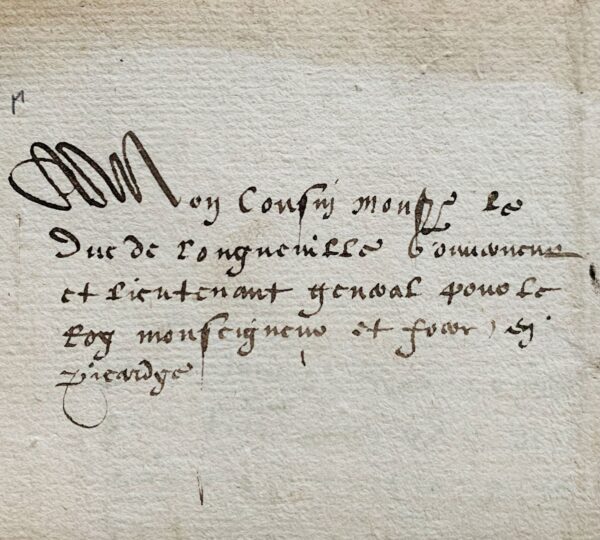 Mon Cousin monsr le
Duc de Longueville Gouverneur
et lieutenant general pour le
Roy monseigneur et frere, en
Picardye